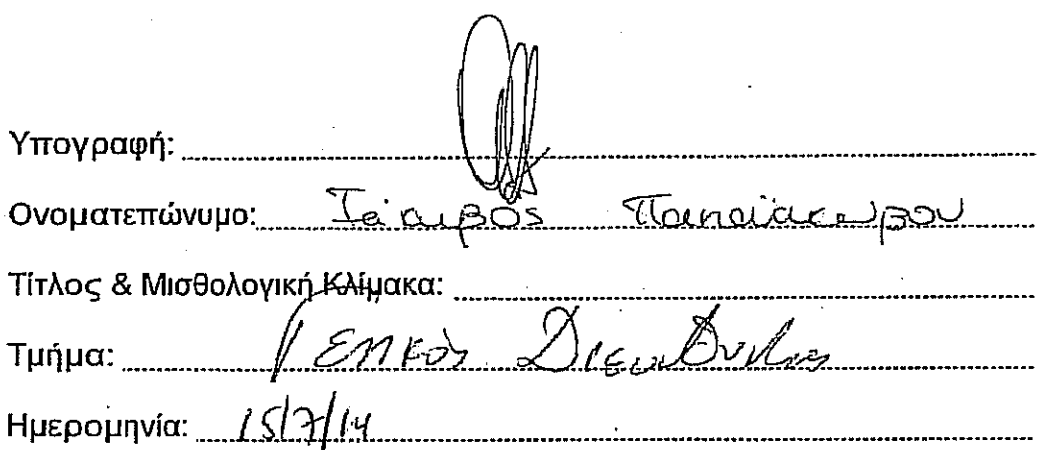 Υπογραφή:
Ονοματεπώνυμο: Ιάκωβος Παπαϊακώβου
Τίτλος & Μισθολογική Κλίμακα:
Τμήμα: Γενικός Διευθυντής
Ημερομηνία: 15/7/14